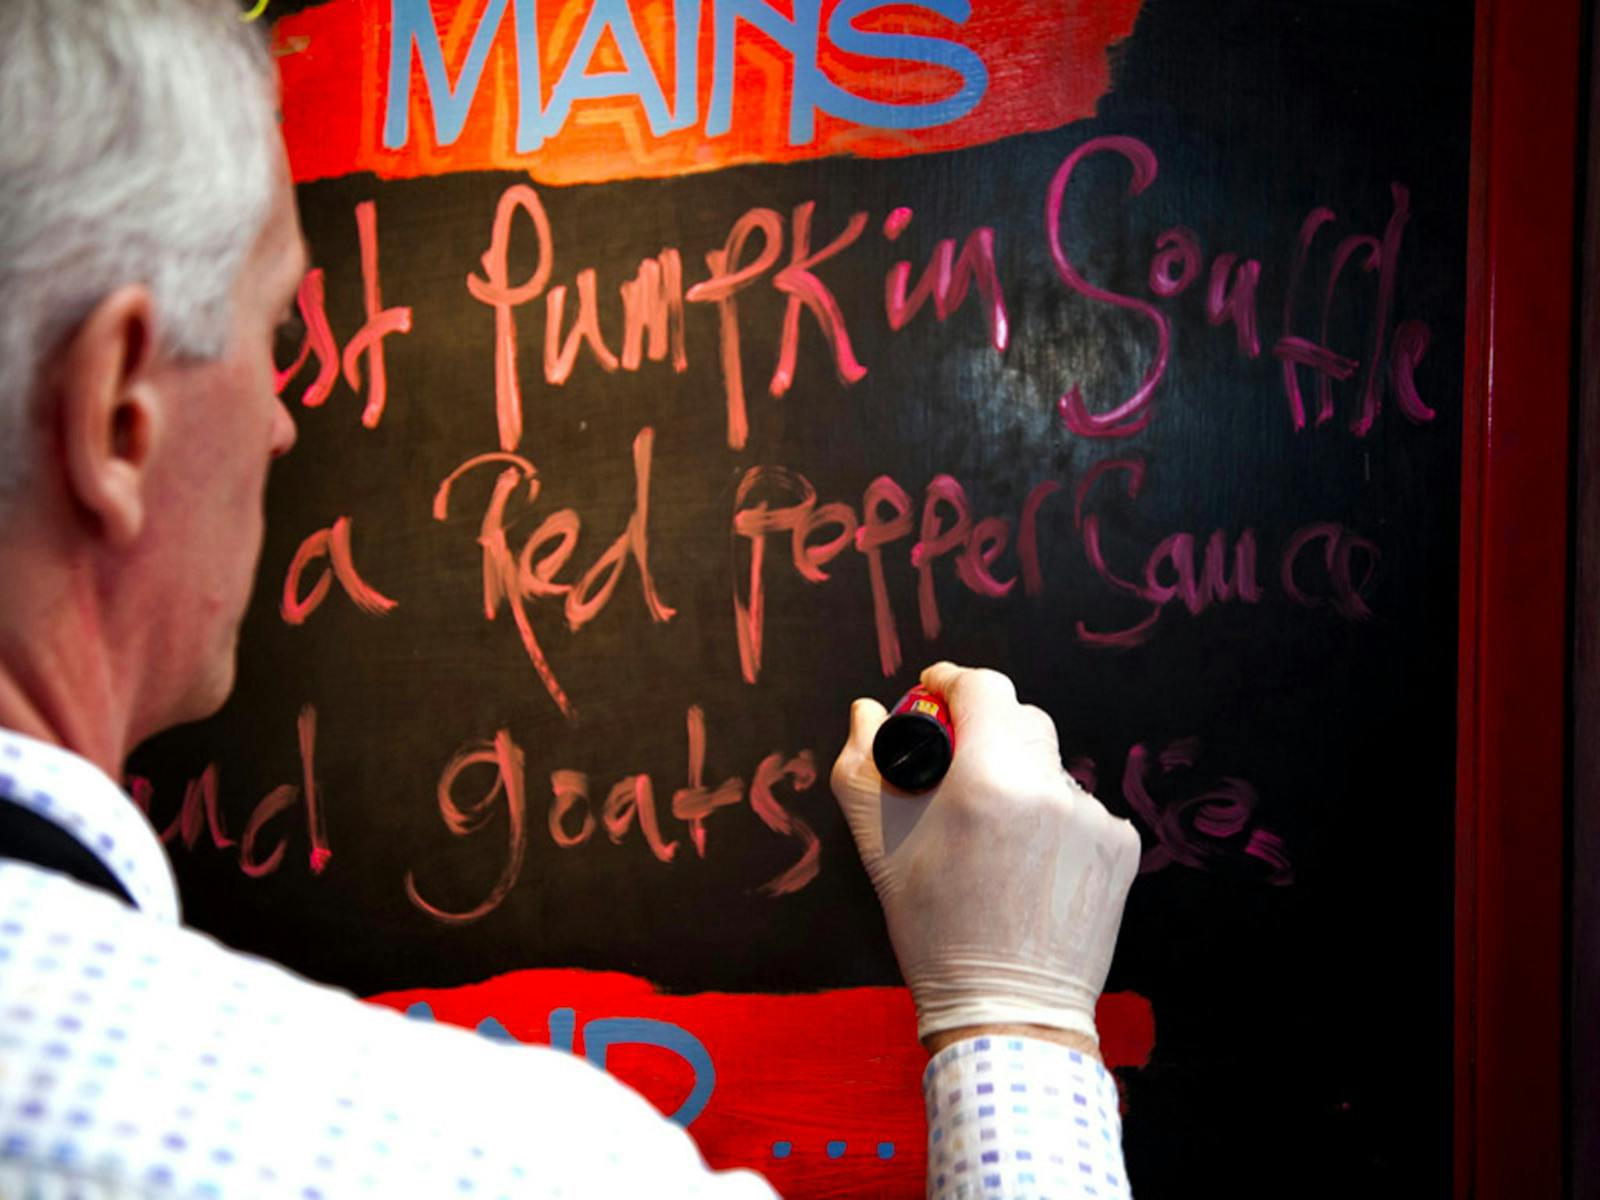 MAINS
Pumpkin Souffle
a Red Pepper Sauce
and goats
AND ...